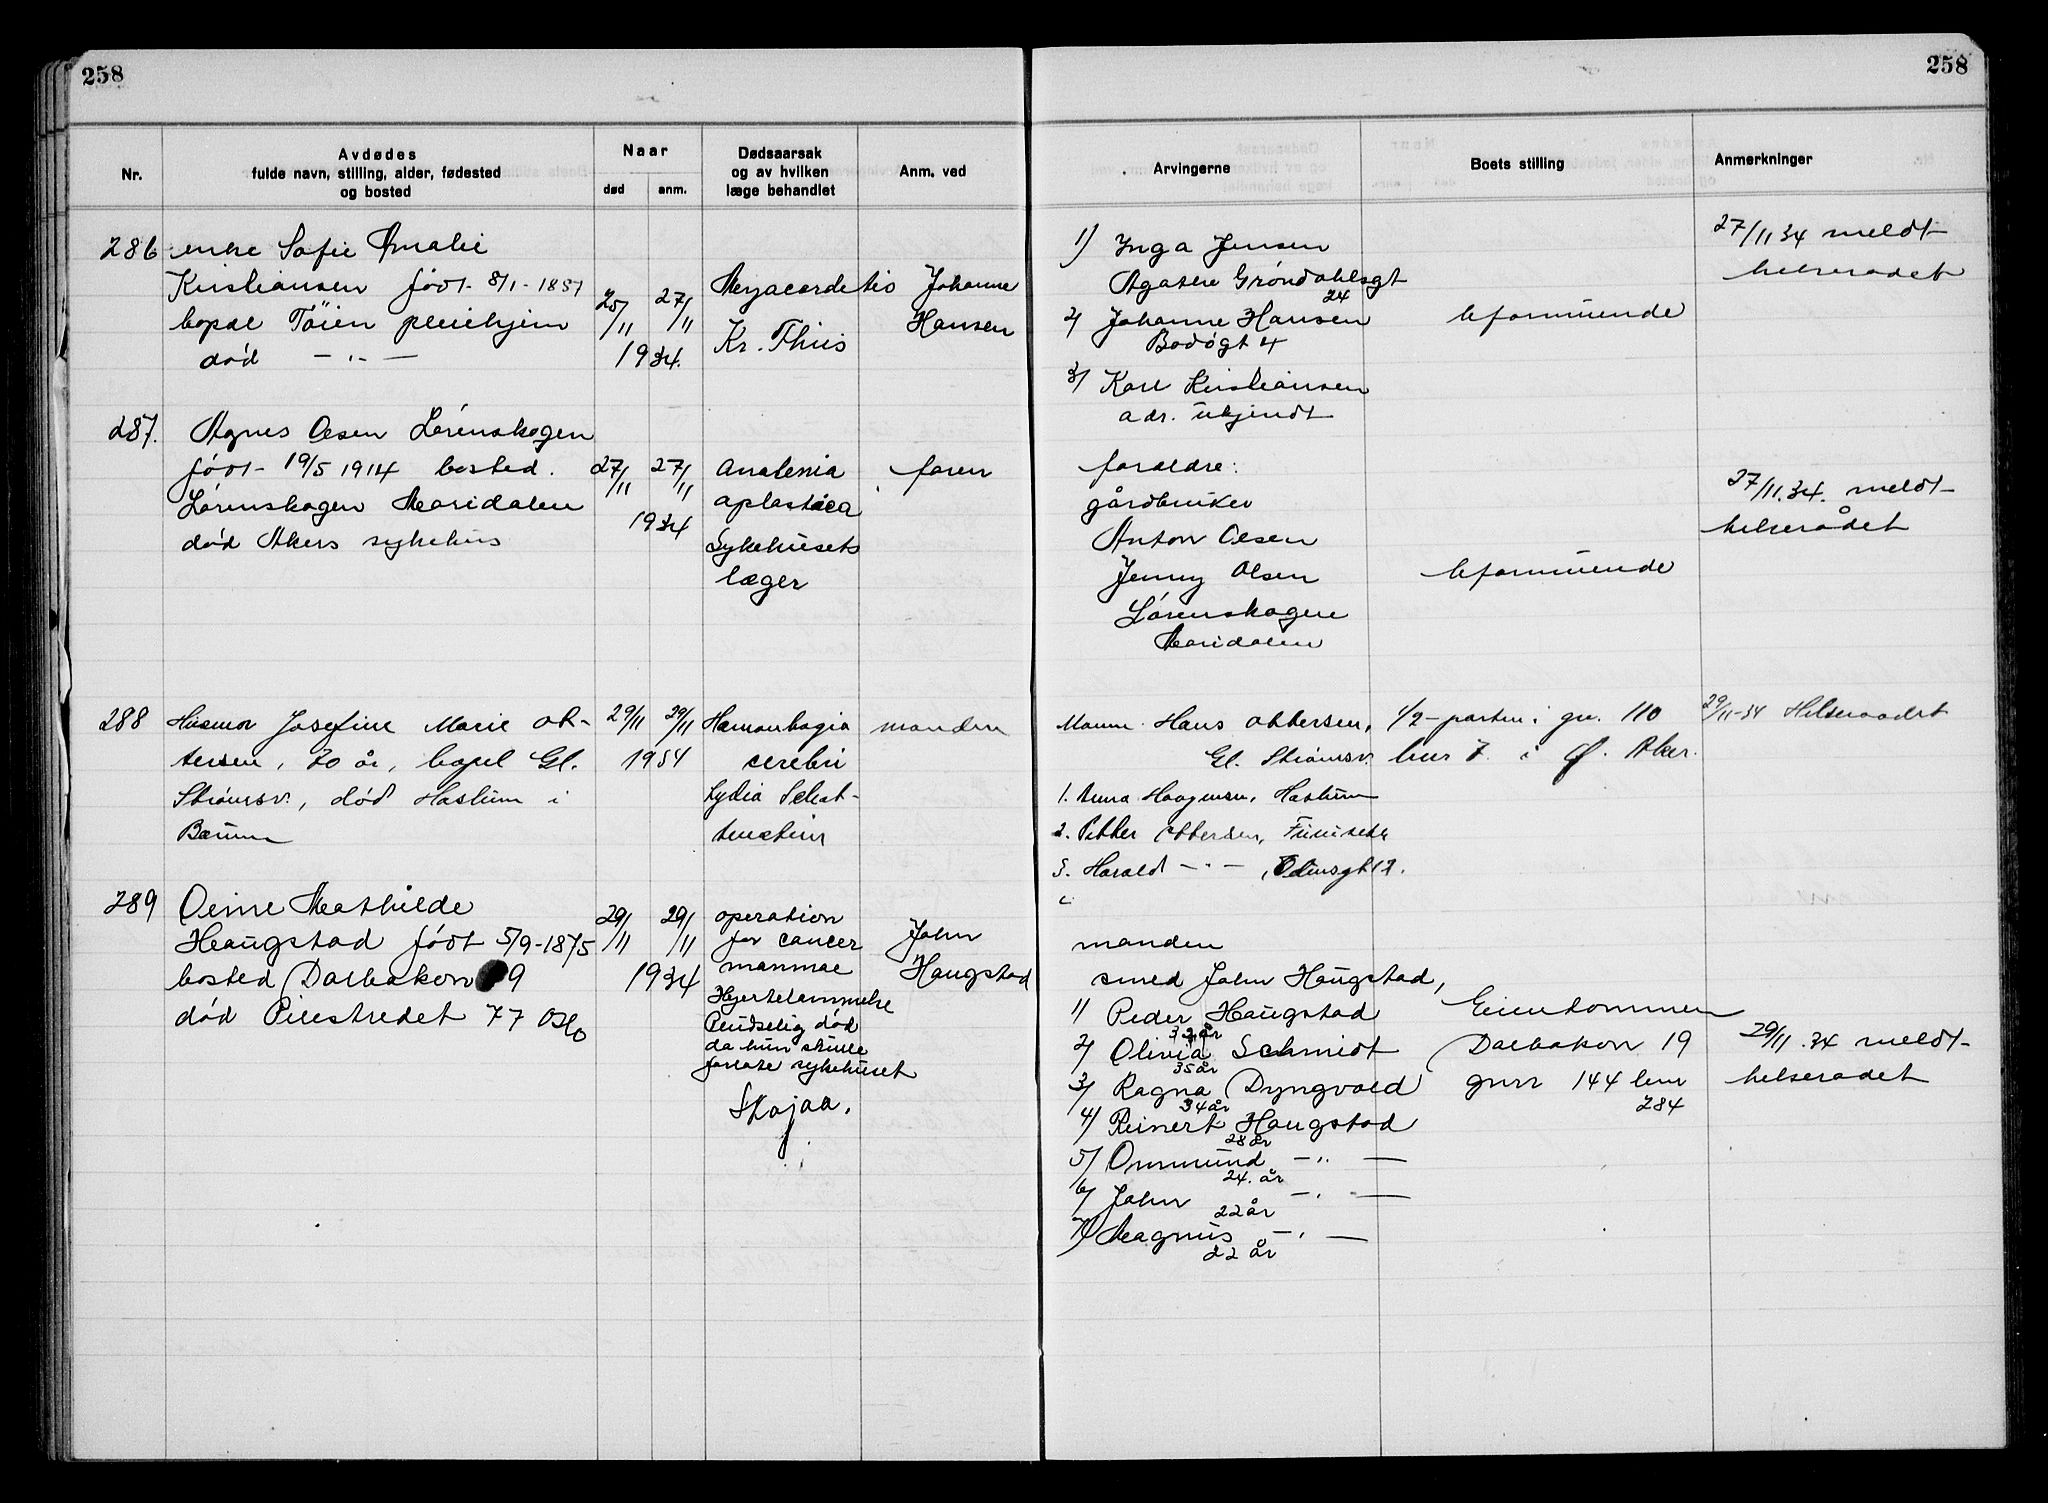 258
258
Nr.
Avdødes
fulde navn, stilling, alder, fødested
og bosted
Naar
død
anm.
Dødsaarsak
og av hvilken
læge behandlet
Anm. ved
Arvingerne
Boets stilling
Anmerkninger
286 enke Sofie Amalie
Kristiansen født 8/1-1851
bopæl Töien pleiehjem
død — " —
25/11 27/11
1934.
Kr. Thiis
Johanne
Hansen
1) Inga Jensen
Agathe Gröndahlsgt
24
2) Johanne Hansen
Bodøgt 4
3) Karl Kristiansen
adr. ukjendt
uformuende
27/11 34 meldt
helseradet
287. Agnes Olsen Lörenskogen
født 19/5 1914 bosted.
Lørenskogen Maridalen
død Akers sykehus
27/11 27/11
1934
aplastica
Sykehusets
læger
faren
foreldre:
gårdbruker
Anton Olsen
Jenny Olsen
Lörenskogen
Maridalen
uformuende
27/11.34. meldt
helserådet
288 Husmor Josefine Marie Ot-
tersen, 70 år, bopel Gl.
Strömsv., død Haslum i
Bærum
29/11 29/11
1934
Hæmorrhagia
cerebri
Lydia
manden
Mann Hans Ottersen,
Gl. Strömsv.
1. Anna Haagensen, Haslum
2. Petter Ottersen,
3. Harald — " —, Odinsgt 12.
1/2-parten i gn. 110
bnr 7 i Ø. Aker.
29/11-34 Helseraadet
289 Oline Mathilde
Haugstad født 5/9-1875
bosted Dalbakken 9
død Pilestredet 77 Oslo
29/11 29/11
1934
operation
for cancer
mammae
Hjertelammelse
Pludselig død
da hun skulle
forlate sykehuset
Skajaa.
John
Haugstad
manden
smed John Haugstad,
1) Peder Haugstad
2) Olivia Schmidt
35 år
3) Ragna Dyngvold
34 år
4) Reinert Haugstad
28 år
5) Ommund — " —
24. år
6) John — " —
22 år
7) Magnus — " —
22 år
Eiendommen
Dalbakken 19
gnr 144 bnr
284
29/11.34 meldt
helseradet